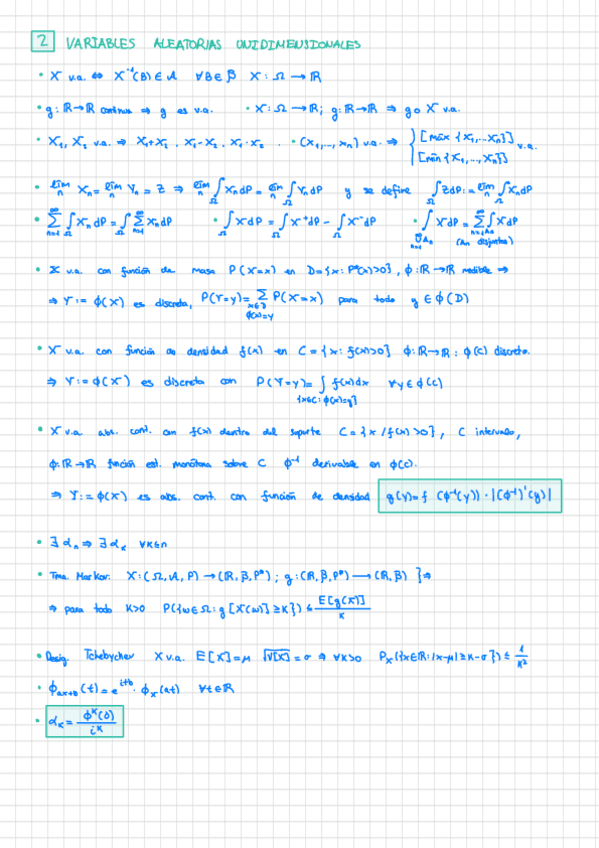 2 VARIABLES ALEATORIAS UNIDIMENSIONALES
• X v.a. ⇔ X⁻¹(B) ∈ A ∀B ∈ β X: Ω → ℝ
• g: ℝ→ℝ continua ⇒ g es v.a. • X: Ω → ℝ; g: ℝ→ℝ ⇒ g ∘ X v.a.
• X₁, X₂ v.a. ⇒ X₁+X₂ , X₁-X₂ , X₁·X₂ . • (X₁,..., Xn) v.a. ⇒ { [máx {X₁,...Xn}] [mín {X₁,..., Xn}] v.a.
• lím_n Xn = lím_n Yn = Z ⇒ lím_n ∫_Ω Xn dP = lím_n ∫_Ω Yn dP y se define ∫_Ω Z dP := lím_n ∫_Ω Xn dP
• ∑_{n=1}^∞ ∫_Ω Xn dP = ∫_Ω ∑_{n=1}^∞ Xn dP • ∫_Ω X dP = ∫_Ω X⁺ dP - ∫_Ω X⁻ dP • ∫_{⋃_{n=1}^∞ An} X dP = ∑_{n=1}^∞ ∫_{An} X dP (An disjuntos)
• X v.a. con función de masa P(X=x) en D={x: Pˣ(x)>0}, ϕ: ℝ→ℝ medible ⇒
⇒ Y:= ϕ(X) es discreta, P(Y=y) = ∑_{x∈D ϕ(x)=y} P(X=x) para todo y ∈ ϕ(D)
• X v.a. con función de densidad f(x) en C={x: f(x)>0} ϕ: ℝ→ℝ : ϕ(C) discreto.
⇒ Y:= ϕ(X) es discreta con P(Y=y) = ∫_{{x∈C: ϕ(x)=y}} f(x)dx ∀y ∈ ϕ(C)
• X v.a. abs. cont. con f(x) dentro del soporte C={x / f(x) >0}, C intervalo,
ϕ: ℝ→ℝ función est. monótona sobre C ϕ⁻¹ derivable en ϕ(C).
⇒ Y:= ϕ(X) es abs. cont. con función de densidad g(y)= f (ϕ⁻¹(y)) · |(ϕ⁻¹)'(y)|
• ∃ αn ⇒ ∃ αk ∀k≤n
• Tma. Markov: X: (Ω, A, P) → (ℝ, β, Pˣ) ; g: (ℝ, β, Pˣ) → (ℝ, β) } ⇒
⇒ para todo K>0 P({w ∈ Ω: g[X(w)] ≥ K}) ≤ E[g(X)]/K
• Desig. Tchebychev X v.a. E[X]=μ √V[X] = σ ⇒ ∀K>0 Pₓ({x∈ℝ: |x-μ| ≥ K·σ}) ≤ 1/K²
• ϕ_{ax+b}(t) = e^{itb} · ϕₓ(at) ∀t∈ℝ
• αk = ϕᵏ(0)/iᵏ